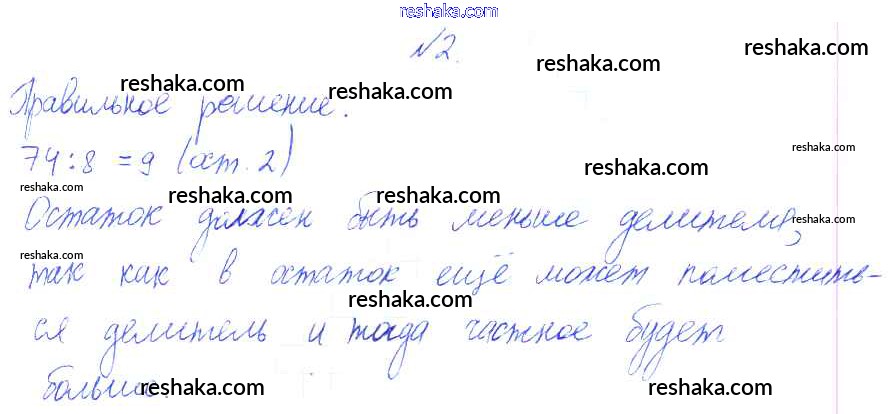 reshaka.com
№2.
reshaka.com reshaka.com reshaka.com
Правильное решение.
reshaka.com reshaka.com
74:8 = 9 (ост. 2)
reshaka.com reshaka.com
reshaka.com reshaka.com reshaka.com
Остаток должен быть меньше делителя,
reshaka.com
reshaka.com
так как в остаток ещё может поместить-
reshaka.com reshaka.com
ся делитель и тогда частное будет
reshaka.com reshaka.com reshaka.com
больше.